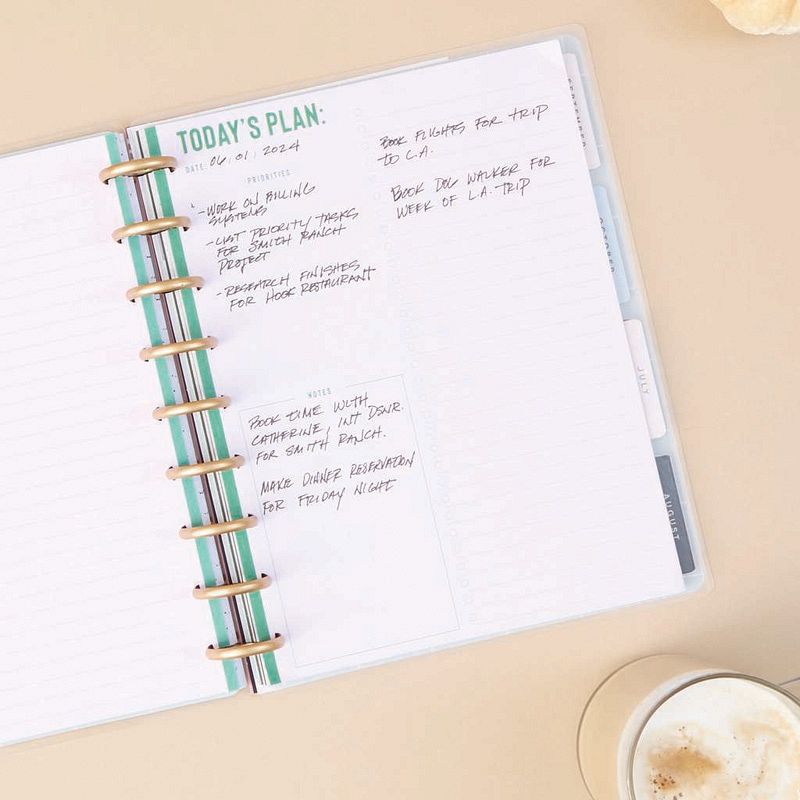 TODAY'S PLAN:
DATE: 06.01.2024
PRIORITIES
- WORK ON BILLING
SYSTEMS
- LIST PRIORITY TASKS
FOR SMITH RANCH
PROJECT
- RESEARCH FINISHES
FOR HOGE RESTAURANT
NOTES
BOOK TIME WITH
CATHERINE, INT DSNR.
FOR SMITH RANCH.
MAKE DINNER RESERVATION
FOR FRIDAY NIGHT
BOOK FLIGHTS FOR TRIP
TO L.A.
BOOK DOG WALKER FOR
WEEK OF L.A. TRIP
SEPTEMBER
OCTOBER
JULY
AUGUST